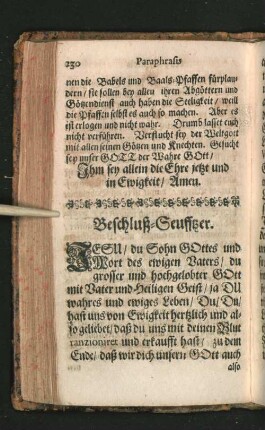 230 Paraphrasis
nen die Babels und Baals-Pfaffen fürplau-
dern / sie sollen bey allen ihren Abgöttern und
Götzendienst auch haben die Seligkeit / weil
die Pfaffen selbst es auch so machen. Aber es
ist erlogen und nicht wahr. Drumb lasset euch
nicht verführen. Verflucht sey der Weltgott
mit allen seinen Götzen und Knechten. Gelucht
sey unser GOTT der Wahre GOtt /
Ihm sey allein die Ehre jetzt und
in Ewigkeit / Amen.
Beschluß-Seufftzer.
JESU / du Sohn GOttes und
Wort des ewigen Vaters / du
grosser und hochgelobter GOtt
mit Vater und Heiligen Geist / ja DU
wahres und ewiges Leben / Du / Du /
hast uns von Ewigkeit hertzlich und al-
so geliebet / daß du uns mit deinen Blut
ranzioniret und erkaufft hast / zu dem
Ende / daß wir dich unsern GOtt auch
also